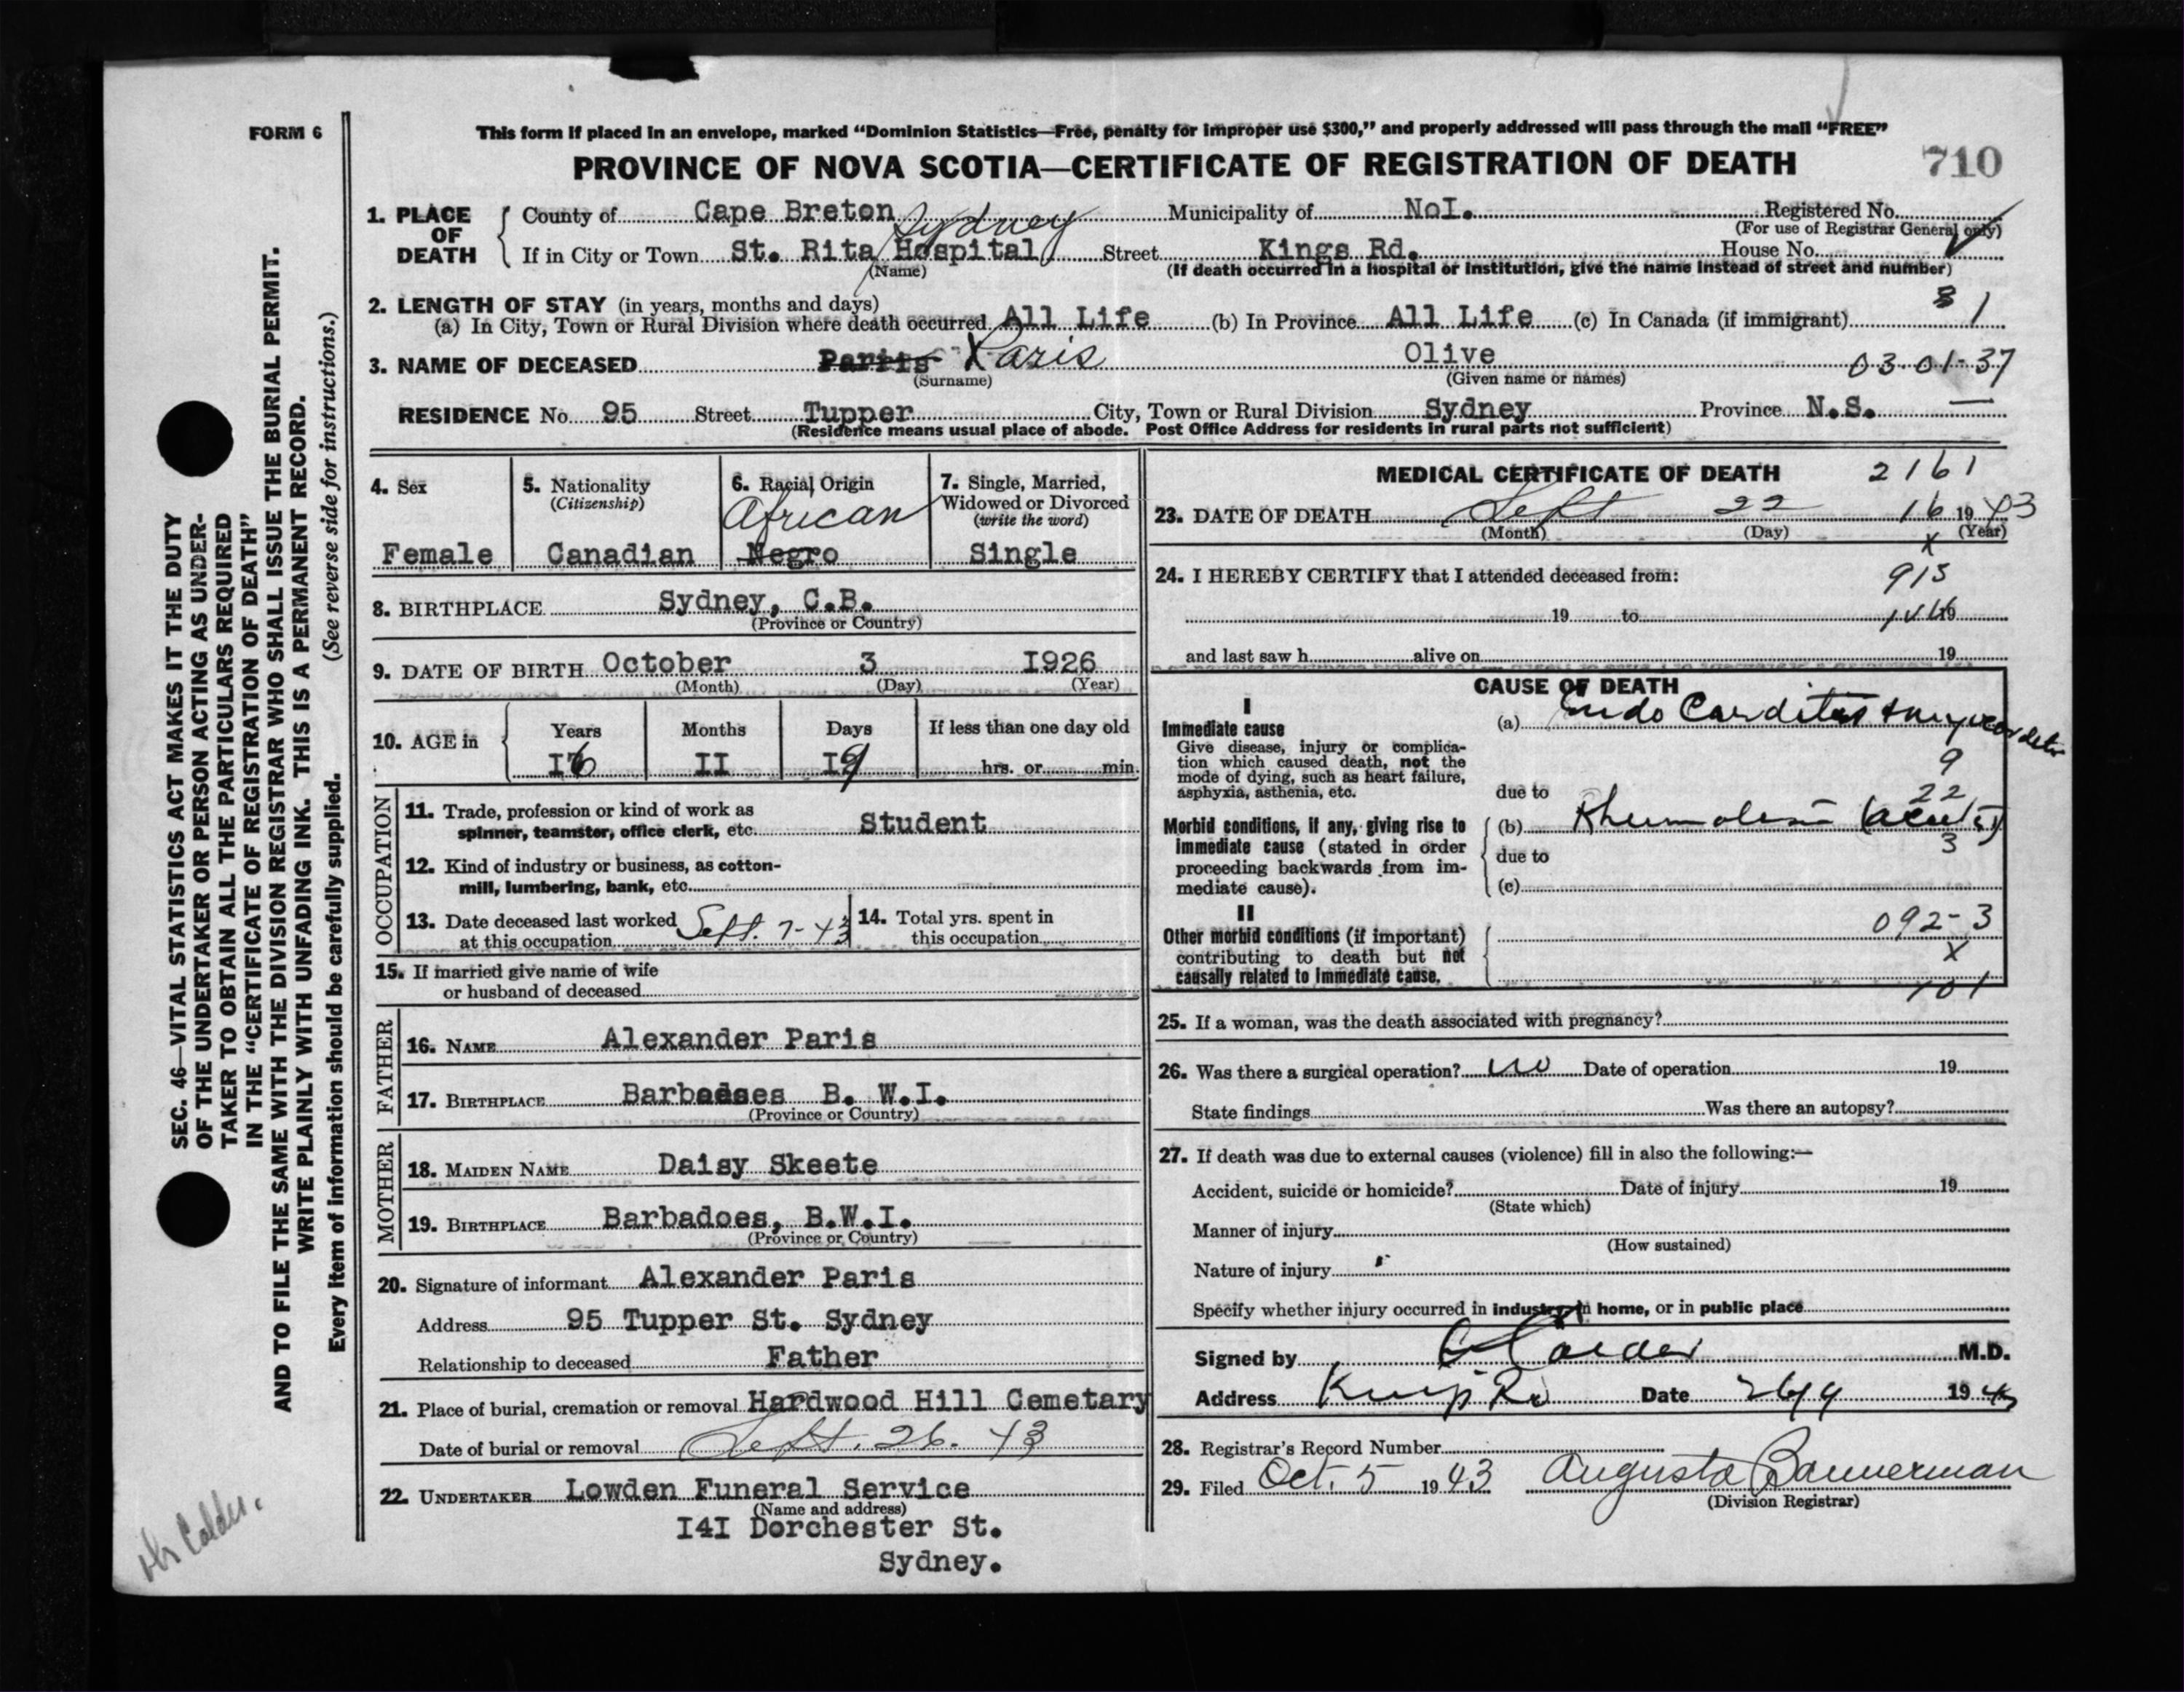 FORM 6
This form if placed in an envelope, marked “Dominion Statistics—Free, penalty for improper use $300,” and properly addressed will pass through the mail “FREE”
PROVINCE OF NOVA SCOTIA—CERTIFICATE OF REGISTRATION OF DEATH
710
SEC. 46—VITAL STATISTICS ACT MAKES IT THE DUTY
OF THE UNDERTAKER OR PERSON ACTING AS UNDER-
TAKER TO OBTAIN ALL THE PARTICULARS REQUIRED
IN THE “CERTIFICATE OF REGISTRATION OF DEATH”
AND TO FILE THE SAME WITH THE DIVISION REGISTRAR WHO SHALL ISSUE THE BURIAL PERMIT.
WRITE PLAINLY WITH UNFADING INK. THIS IS A PERMANENT RECORD.
Every item of information should be carefully supplied. (See reverse side for instructions.)
1. PLACE OF DEATH
County of Cape Breton Municipality of NoI. Registered No.
(For use of Registrar General only)
Sydney
If in City or Town St. Rita Hospital Street Kings Rd. House No.
(Name) (If death occurred in a hospital or institution, give the name instead of street and number)
2. LENGTH OF STAY (in years, months and days)
(a) In City, Town or Rural Division where death occurred All Life (b) In Province All Life (c) In Canada (if immigrant) 1
3. NAME OF DECEASED Parris Paris Olive 03-01-37
(Surname) (Given name or names)
RESIDENCE No. 95 Street Tupper City, Town or Rural Division Sydney Province N.S.
(Residence means usual place of abode. Post Office Address for residents in rural parts not sufficient)
4. Sex
Female
5. Nationality
(Citizenship)
Canadian
6. Racial Origin
African
Negro
7. Single, Married,
Widowed or Divorced
(write the word)
Single
8. BIRTHPLACE Sydney, C.B.
(Province or Country)
9. DATE OF BIRTH October 3 I926
(Month) (Day) (Year)
10. AGE in
Years Months Days If less than one day old
I6 II I9 hrs. or min.
OCCUPATION
11. Trade, profession or kind of work as
spinner, teamster, office clerk, etc. Student
12. Kind of industry or business, as cotton-
mill, lumbering, bank, etc.
13. Date deceased last worked
at this occupation Sept. 7-43
14. Total yrs. spent in
this occupation
15. If married give name of wife
or husband of deceased
FATHER
16. NAME Alexander Paris
17. BIRTHPLACE Barbadoes B. W.I.
(Province or Country)
MOTHER
18. MAIDEN NAME Daisy Skeete
19. BIRTHPLACE Barbadoes, B.W.I.
(Province or Country)
20. Signature of informant Alexander Paris
Address 95 Tupper St. Sydney
Relationship to deceased Father
21. Place of burial, cremation or removal Hardwood Hill Cemetary
Date of burial or removal Sept. 26. 43
22. UNDERTAKER Lowden Funeral Service
(Name and address)
I4I Dorchester St.
Sydney.
Dr Calder.
MEDICAL CERTIFICATE OF DEATH 2161
23. DATE OF DEATH Sept 22 16 1943
(Month) (Day) (Year)
X
24. I HEREBY CERTIFY that I attended deceased from: 915
19 to 19
and last saw h alive on 19
CAUSE OF DEATH
I
Immediate cause
Give disease, injury or complica-
tion which caused death, not the
mode of dying, such as heart failure,
asphyxia, asthenia, etc.
(a) Endo Carditis & myocarditis
9
due to
22
Morbid conditions, if any, giving rise to
immediate cause (stated in order
proceeding backwards from im-
mediate cause).
(b) (acute)
3
due to
(c)
II
Other morbid conditions (if important)
contributing to death but not
causally related to immediate cause.
092-3
X
101
25. If a woman, was the death associated with pregnancy?
26. Was there a surgical operation? no Date of operation 19
State findings Was there an autopsy?
27. If death was due to external causes (violence) fill in also the following:—
Accident, suicide or homicide? Date of injury 19
(State which)
Manner of injury
(How sustained)
Nature of injury
Specify whether injury occurred in industry, in home, or in public place
Signed by Calder M.D.
Address Kings Rd Date 26 9 1943
28. Registrar's Record Number
29. Filed Oct. 5 1943 Augusta Bannerman
(Division Registrar)